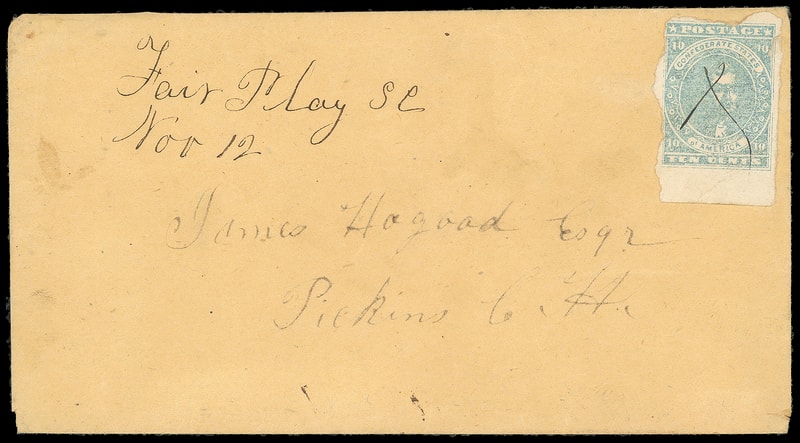 Fair Play SC
Nov 12
POSTAGE
10 10
CONFEDERATE STATES
OF AMERICA
10 10
TEN CENTS
James Hagood Esqr
Pickins C.H.